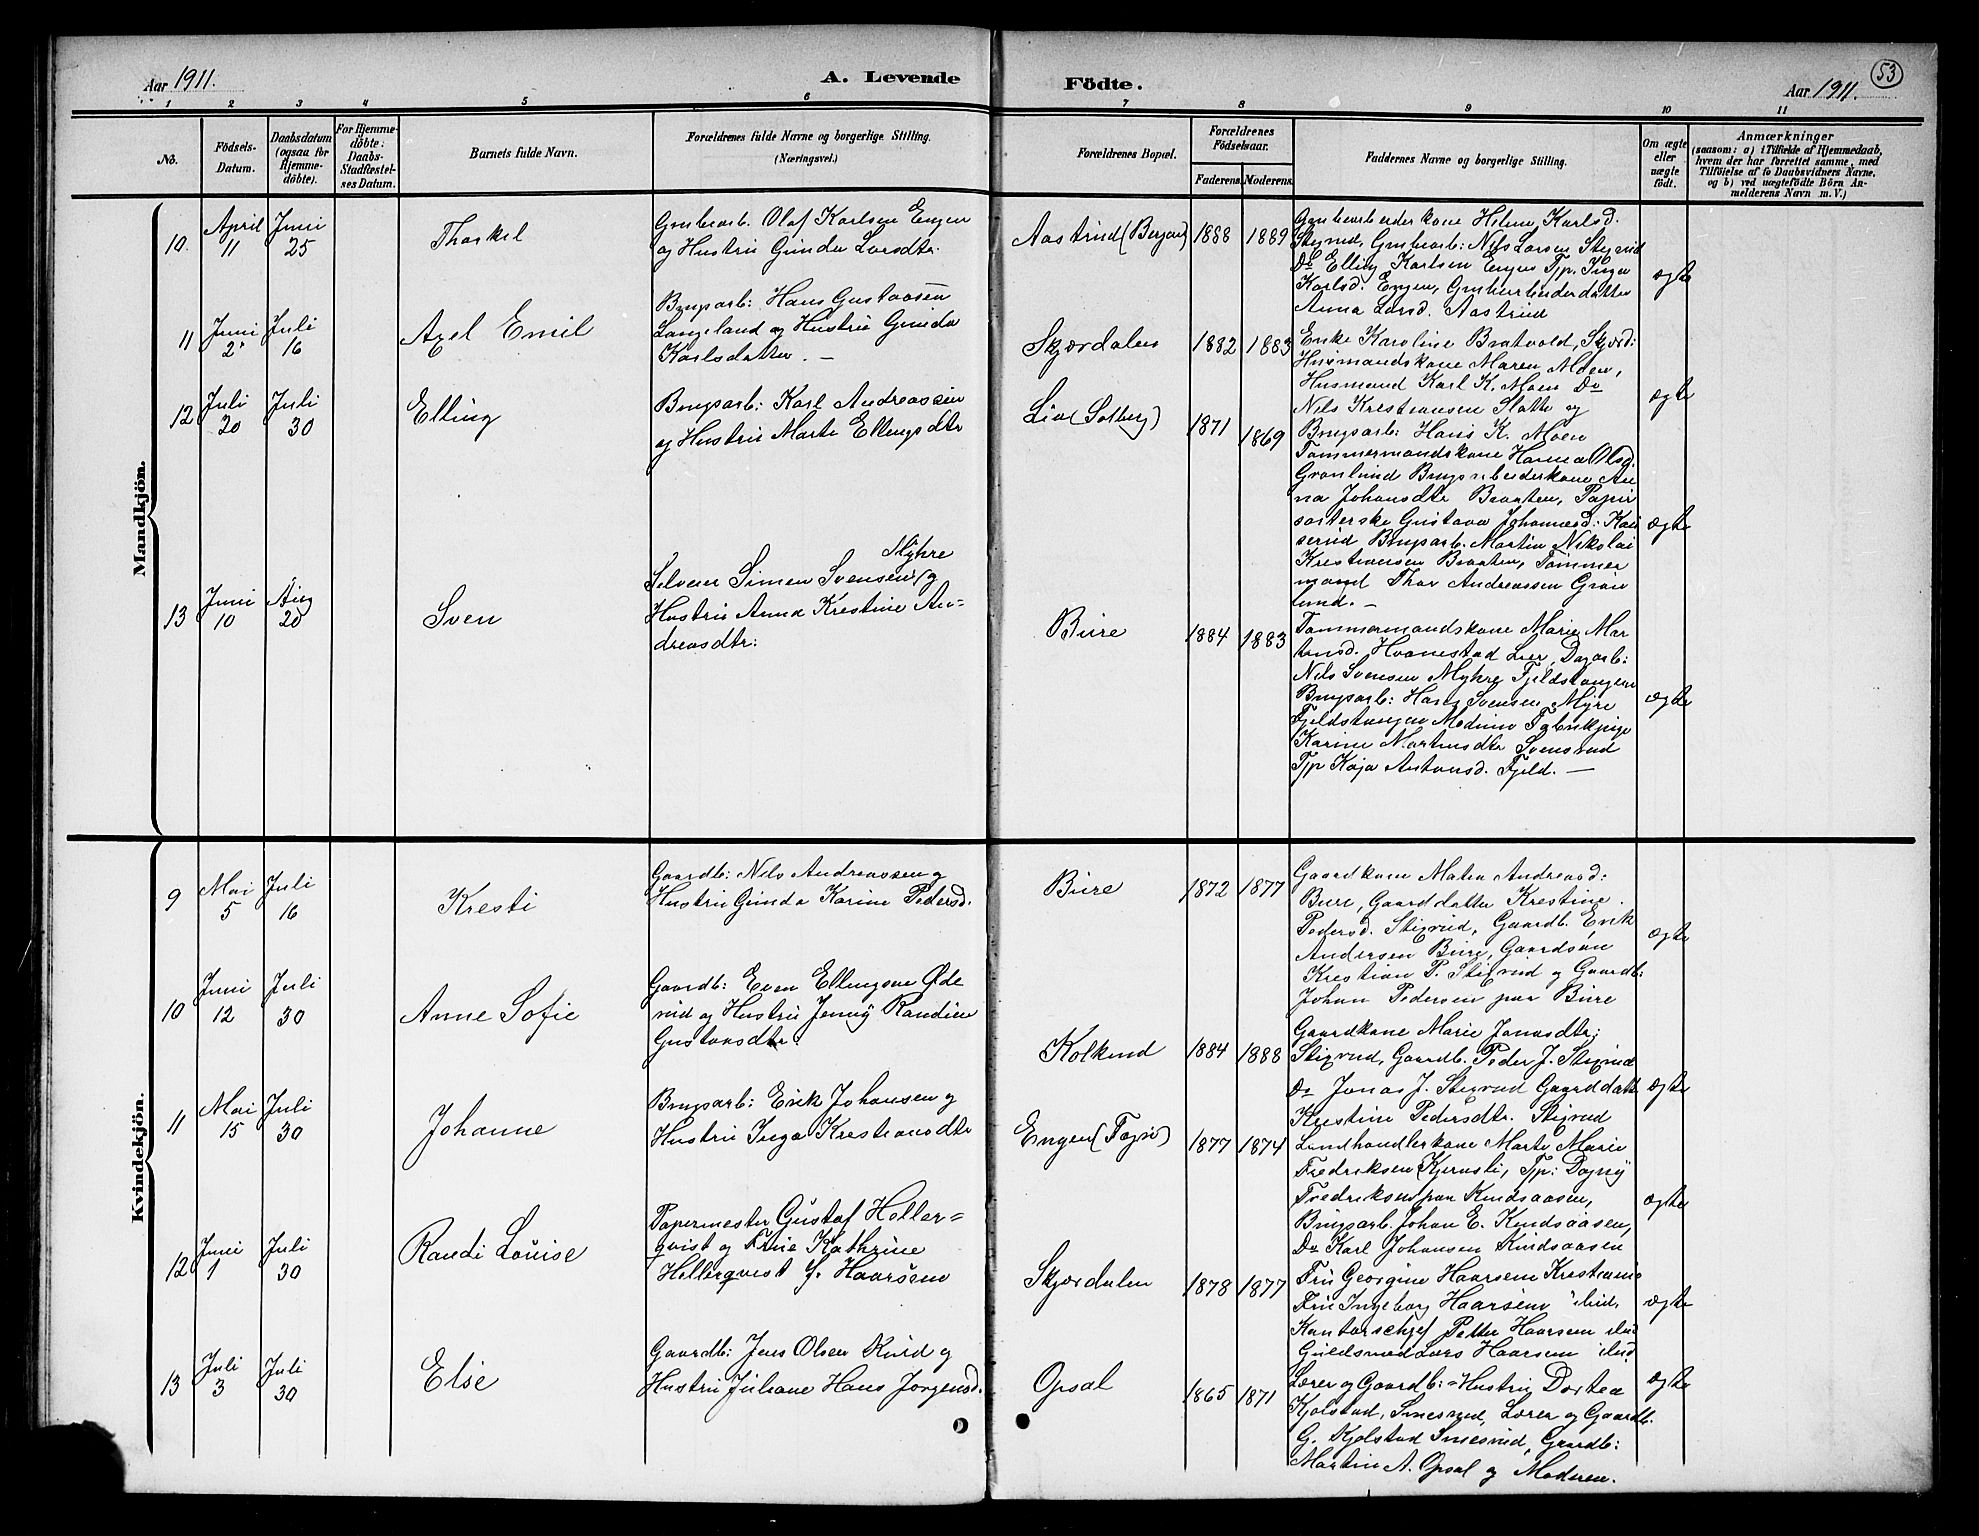 Aar 1911.
A. Levende
Födte.
Aar 1911.
53
1 2 3 4 5 6 7 8 9 10 11
No.
Födsels-
Datum.
Daabsdatum
(ogsaa for
Hjemme-
döbte).
For Hjemme-
döbte:
Daabs-
Stadfæstel-
ses Datum.
Barnets fulde Navn.
Forældrenes fulde Navne og borgerlige Stilling.
(Næringsvei.)
Forældrenes Bopæl.
Forældrenes
Födselsaar.
Faderens. Moderens.
Faddernes Navne og borgerlige Stilling.
Om ægte
eller
uægte
født.
Anmærkninger
(saasom: a) i Tilfælde af Hjemmedaab,
hvem der har forrettet samme, med
Tilföielse af to Daabsvidners Navne,
og b) ved uægtefödte Börn An-
melderens Navn m. V.)
Mandkjön.
10
April
11
Juni
25
Thorkel
Grubearb. Olaf Karlsen Engen
og Hustru Gunda Larsdtr.
Aastrud (Berger)
1888 1889
Grubearbeiderkone Helene Karlsd.
Stigrud, Grubearb: Nils Larsen Stigrud
Do Elling Karlsen Engen Tjp. Inga
Karlsd. Engen, Grubearbeiderdatter
Anna Larsd. Aastrud
ægte
11
Juni
2
Juli
16
Axel Emil
Brugsarb: Hans Gustavsen
Langeland og Hustru Gunda
Karlsdatter. —
Skjærdalen
1882 1883
Enke Karoline Bratvold, Skjærd:
Husmandskone Maren Moen,
Husmand Karl K. Moen Do
Nils Kristiansen Slatte og
Brugsarb: Hans K. Moen
ægte
12
Juli
20
Juli
30
Elling
Brugsarb: Karl Andreassen
og Hustru Marte Ellingsdtr
Lia (Solberg)
1871 1869
Tømmermandskone Hanna Olsd.
Grønlund Brugsarbeiderkone An-
na Johansdtr Braaten, Papir
sorterske Gustava Johannesd:
Brugsarb. Martin Nikolai
Kristiansen Braaten, Tømmer
mand Thor Andreassen Grøn
lund. —
ægte
13
Juni
10
Aug
20
Sven
Selveier Simen Svensen Myhre og
Hustru Anna Krestine An=
dreasdtr:
Bure
1884 1883
Tømmermandskone Marie Mar
tinsd. Hvamestad Lier, Dagarb:
Nils Svensen Myhre Fjeldstangen
Brugsarb: Hans Svensen Myre
Fjeldstangen Fabrikpige
Karine Martinsdtr Svensrud
Tjp Kaja Antonsd. Fjeld. —
ægte
Kvindekjön.
9
Mai
5
Juli
16
Kresti
Gaardb: Nils Andreassen og
Hustru Gunda Karine Pedersd.
Bure
1872 1877
Gaardkone Maten Andreasd:
Bure, Gaarddatter Krestine
Pedersd. Stigrud, Gaardb. Erik
Andersen Bure, Gaardsøn
Krestian P. Stigrud og Gaardb:
Johan Pedersen paa Bure
ægte
10
Juni
12
Juli
30
Anne Sofie
Gaardb: Even Ellingsen Øde
rud og Hustru Jenny Randine
Gustavsdtr
Kolkind
1884 1888
Gaardkone Marie Jonasdtr;
Stigrud, Gaardb. Peder J. Stigrud
Do Jonas J. Stigrud Gaarddatt
Krestine Pedersdtr. Stigrud
ægte
11
Mai
15
Juli
30
Johanne
Brugsarb: Erik Johansen og
Hustru Inga Krestiansdtr
Engen (Fagn)
1877 1874
Landhandlerkone Marte Marie
Fredriksen Kjernsli, Tjp: Dagny
Fredriksen paa Kindsaasen,
Brugsarb. Johan E. Kindsaasen,
Do Karl Johansen Kindsaasen
ægte
12
Juni
1
Juli
30
Randi Louise
Papermester Gustaf Heller=
qvist og Frue Kathrine
Hellerqvist f. Haarsem
Skjærdalen
1878 1877
Fru Georgine Haarsem Krestiania
Fru Ingeborg Haarsem ibid.
Kontorschef Petter Haarsem ibid
Guldsmed Lars Haarsem ibid.
ægte
13
Juli
3
Juli
30
Else
Gaardb: Jens Olsen Rud og
Hustru Juliane Hans Jørgensd.
Opsal
1865 1871
Lærer og Gaardb:=Hustru Dortea
Kjølstad, Smesrud, Lærer og Gaardb.
G. Kjølstad Smesrud, Gaardb:
Martin A. Opsal og Moderen.
ægte